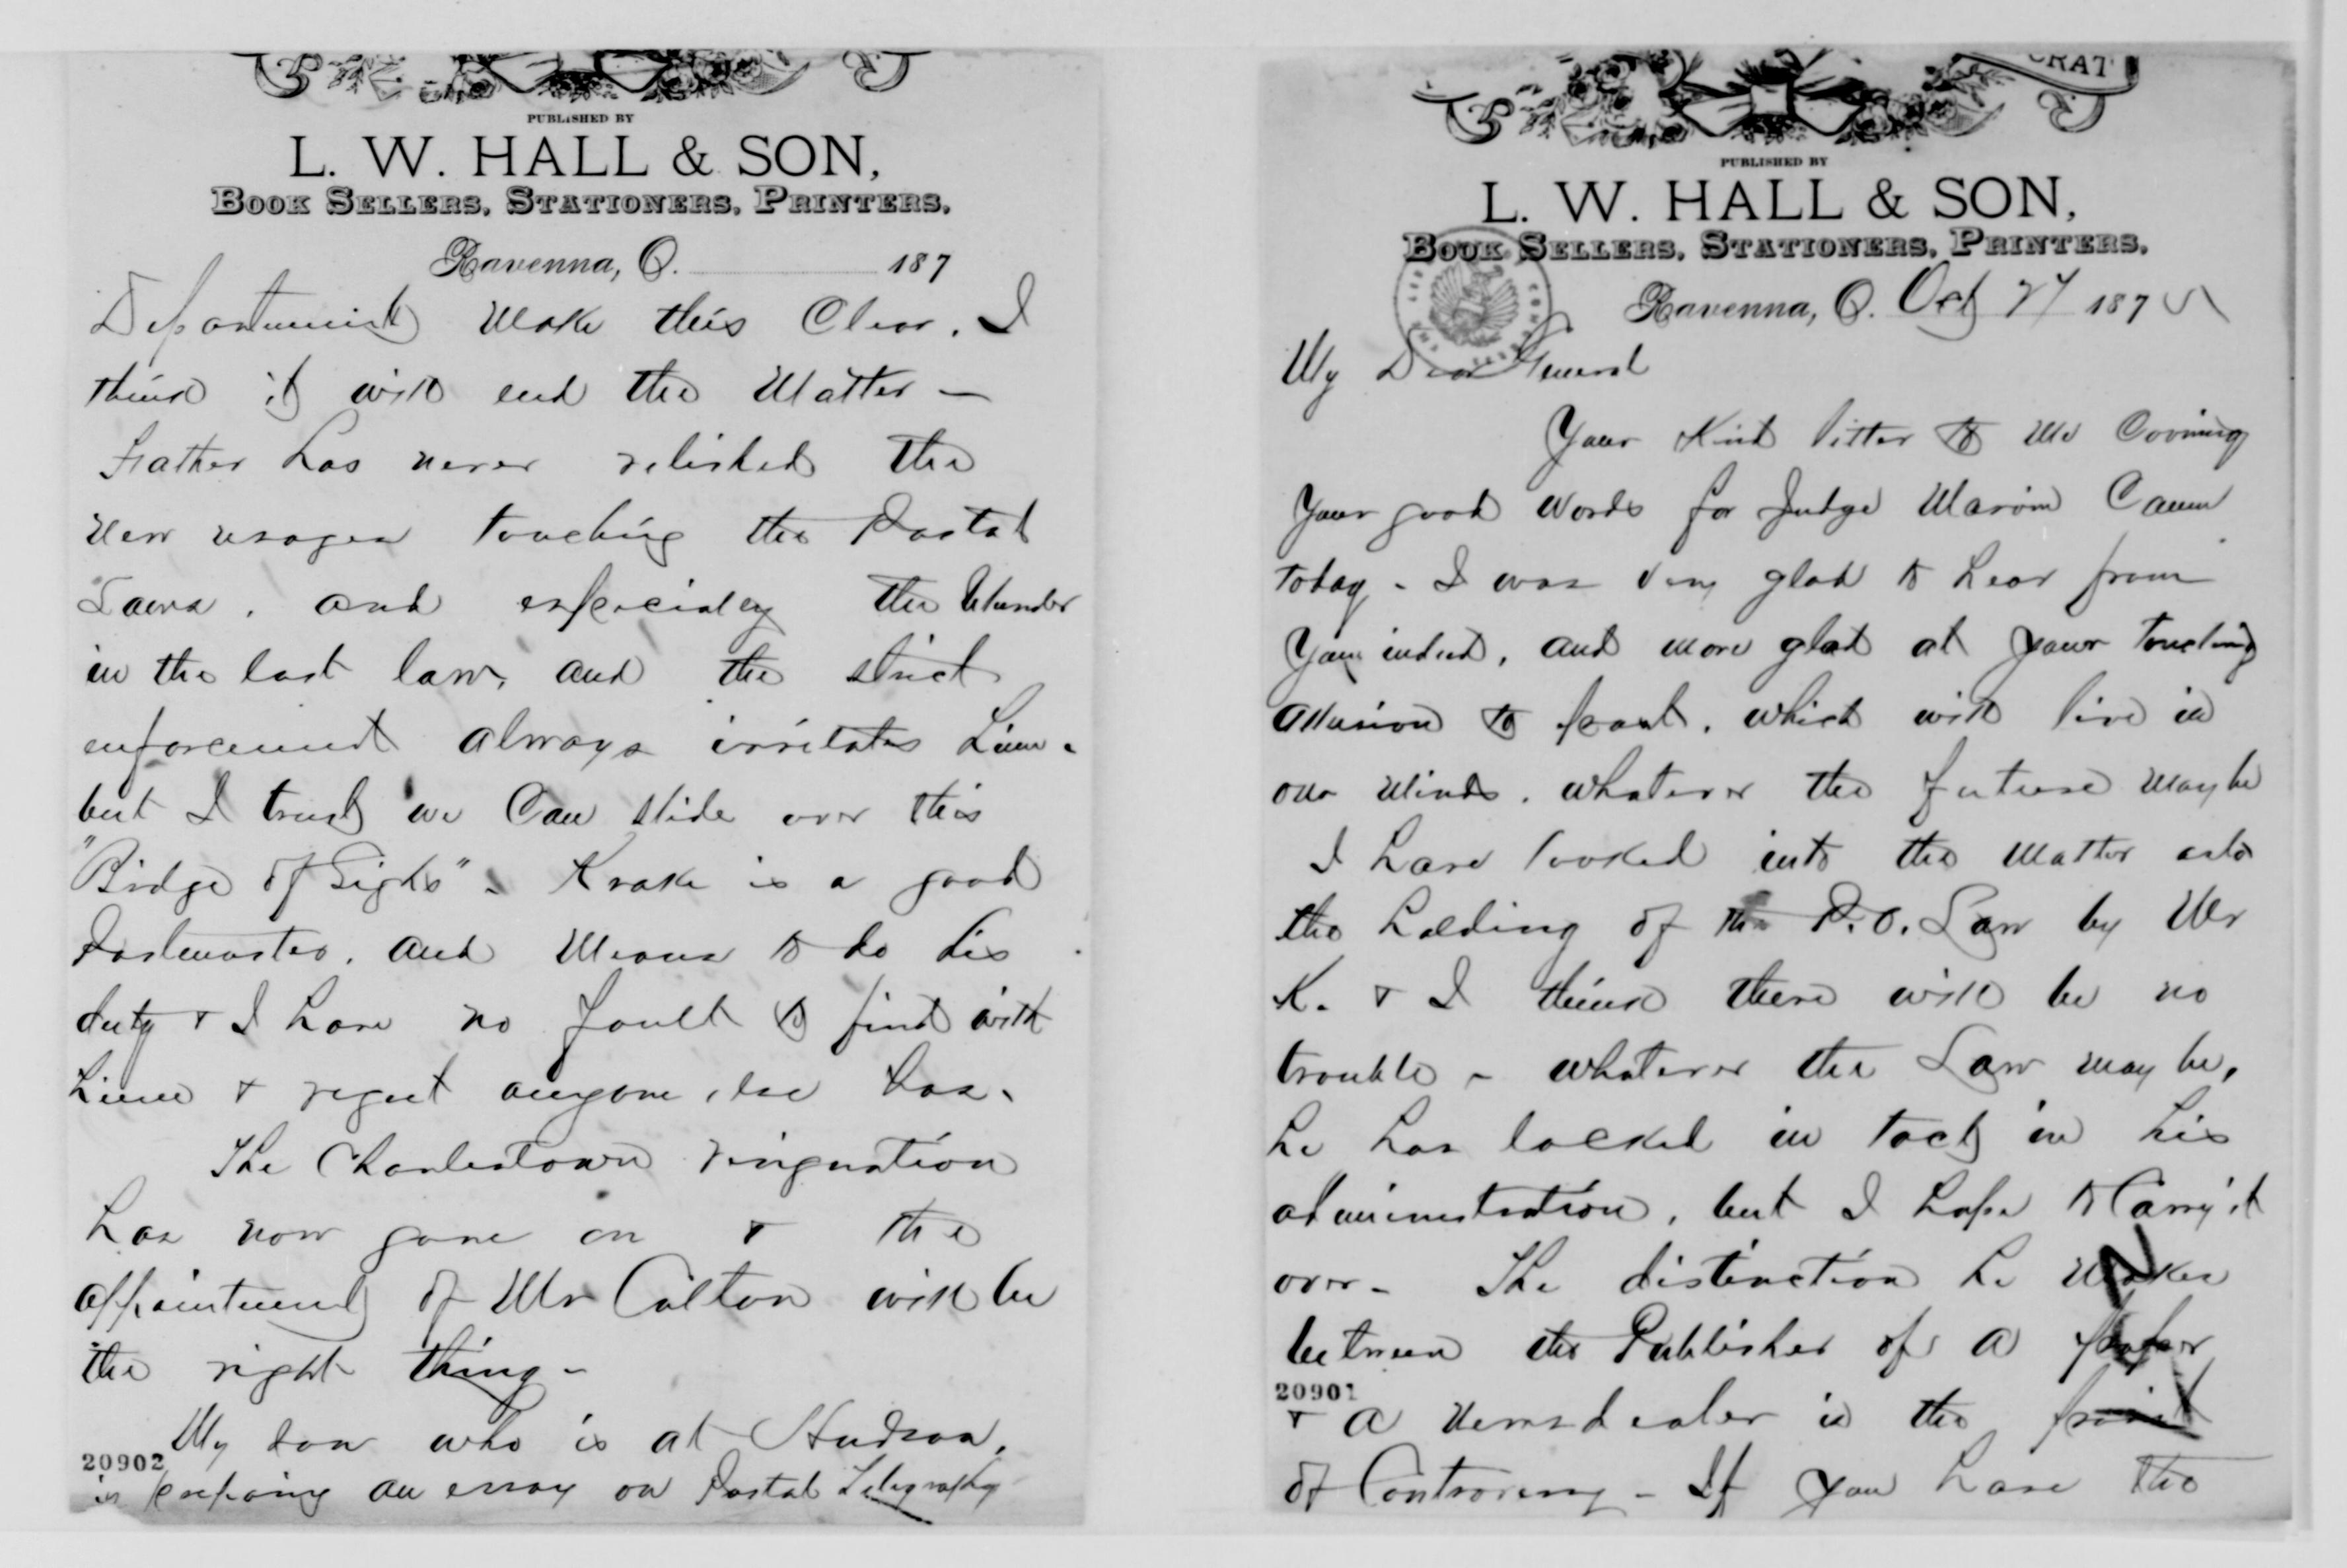 CRAT
PUBLISHED BY
L. W. HALL & SON,
BOOK SELLERS, STATIONERS, PRINTERS.
Ravenna, O. Oct 27 1875
My Dear General
Your Kind letter to me Covering
Your good words for Judge Marvin Came
today - I was very glad to hear from
You indeed, and more glad at your touching
allusion to past, which will live in
our minds, whatever the future may be
I have looked into the matter as to
the holding of the P.O. Law by Mr
K. & I think there will be no
trouble - whatever the Law may be,
he has lacked in tact in his
administration, but I hope to Carry it
over - The distinction he makes
between the Publisher of a paper
20901
& a newsdealer is the point
of Controversy - If you have the
PUBLISHED BY
L. W. HALL & SON,
BOOK SELLERS, STATIONERS, PRINTERS.
Ravenna, O. 187
Department make this Clear, I
think it will end the matter -
Father has never relished the
new usages touching the Postal
Laws, and especialy the blunder
in the last law, and the strict
enforcement always irritates him -
but I trust we Can slide over this
"Bridge of Sighs" - Krake is a good
Postmaster, and means to do his
duty & I have no fault to find with
him & regret anyone else has.
The Charlestown resignation
has now gone on & the
appointment of Mr Colton will be
the right thing -
My son who is at Hudson,
20902
is preparing an essay on Postal Telegraphy